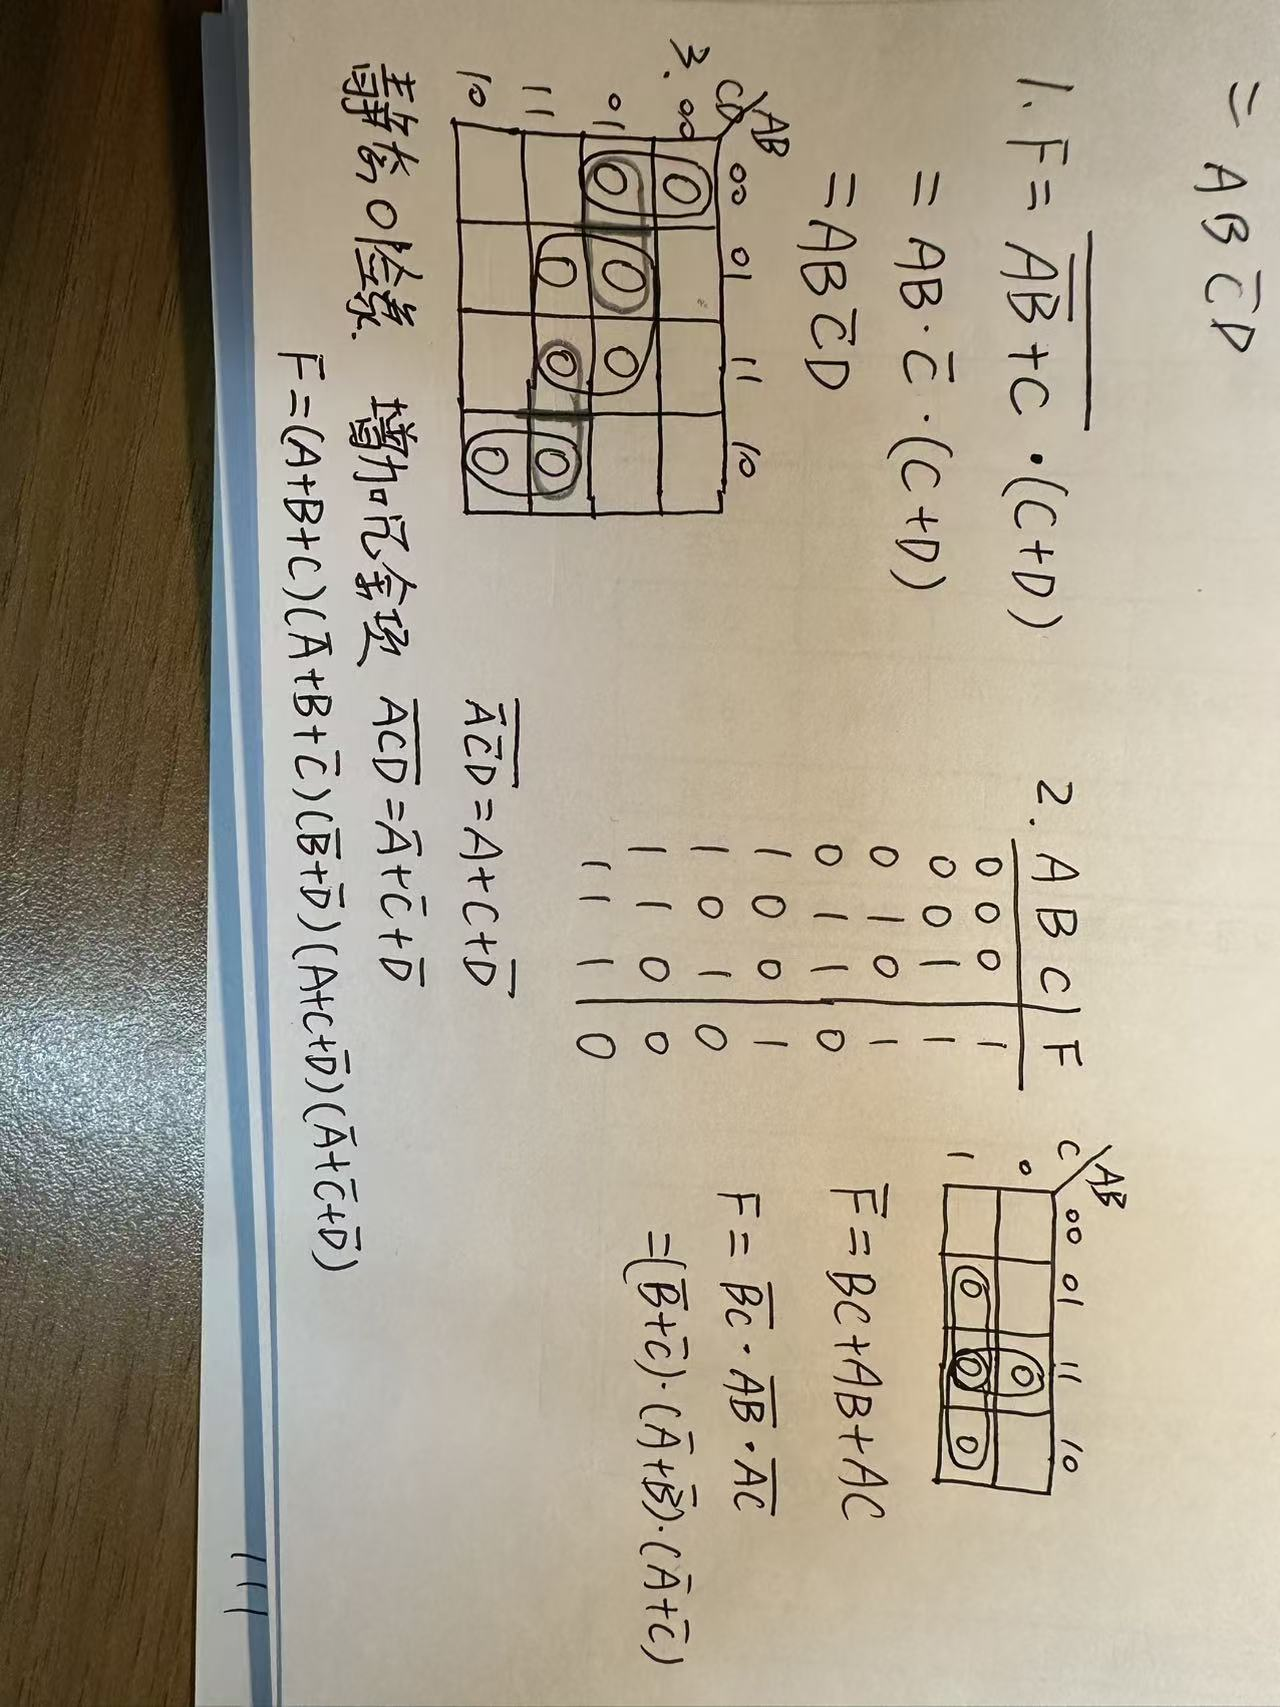 = ABC̅D
1. F = \overline{\overline{AB}+C}·(C+D)
= AB·C̅·(C+D)
= ABC̅D
2. A B C | F
0 0 0 1
0 0 1 1
0 1 0 1
0 1 1 0
1 0 0 1
1 0 1 0
1 1 0 0
1 1 1 0
C\AB 00 01 11 10
0 0
1 0 0 0
F̅=BC+AB+AC
F=\overline{BC}·\overline{AB}·\overline{AC}
=(B̅+C̅)·(A̅+B̅)·(A̅+C̅)
3. CD\AB 00 01 11 10
00 0
01 0 0 0
11 0 0 0
10 0
\overline{A̅C̅D}=A+C+D̅
静态0险象. 增加冗余项 \overline{ACD}=A̅+C̅+D̅
F=(A+B+C)(A̅+B+C̅)(B̅+D̅)(A+C+D̅)(A̅+C̅+D̅)